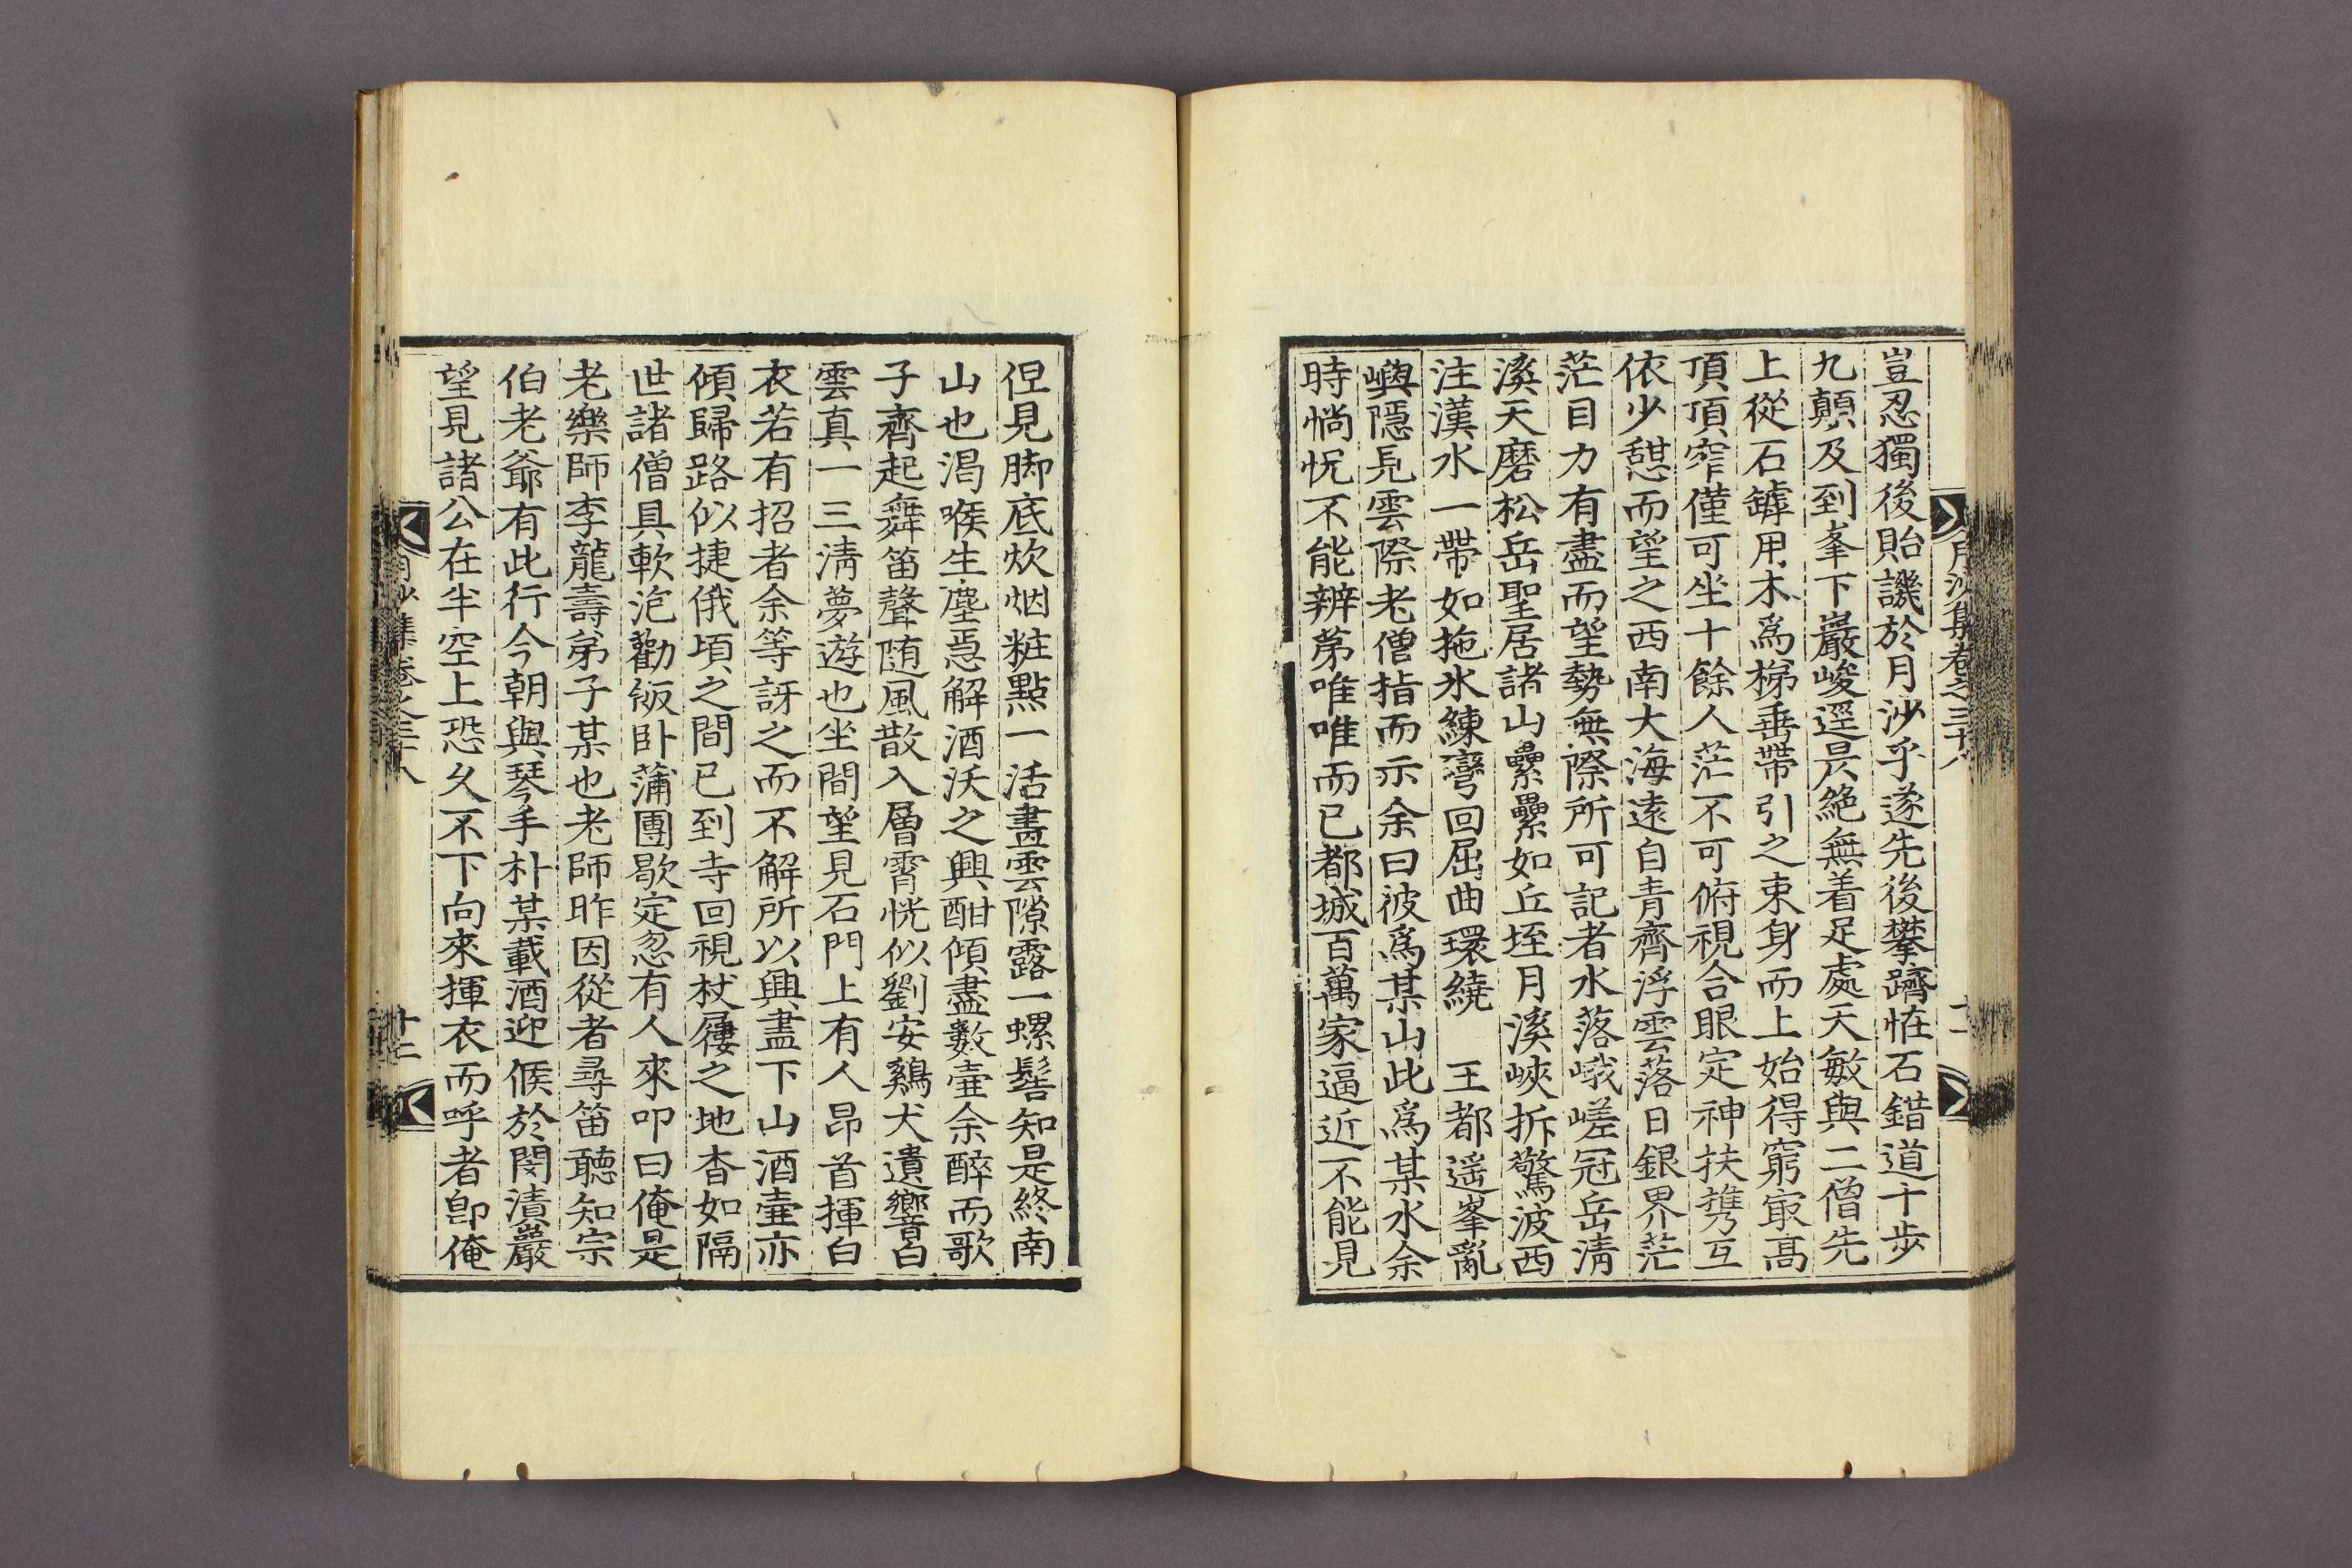 豈忍獨後貽譏於月沙乎遂先後攀躋恠石錯道十步
九顛及到峯下巖峻逕㫁絶無着足處天敏與二僧先
上從石罅用木爲梯垂帶引之束身而上始得窮㝡高
頂頂窄僅可坐十餘人茫不可俯視合眼定神扶携互
依少憇而望之西南大海遠自青齊浮雲落日銀界茫
茫目力有盡而望勢無際所可記者水落峨嵯冠岳清
溪天磨松岳聖居諸山纍纍如丘垤月溪峽拆驚波西
注漢水一帶如拖氷練彎回屈曲環繞 王都遥峯亂
嶼隱見雲際老僧指而示余曰彼爲某山此爲某水余
時惝怳不能辨苐唯唯而已都城百萬家逼近不能見
月沙集卷之三十八
十一
但見脚底炊烟粧點一活畫雲隙露一螺髻知是終南
山也渴喉生塵急解酒沃之興酣傾盡數壷余醉而歌
子齊起舞笛聲随風散入層霄恍似劉安鷄犬遺響白
雲真一三淸夢遊也坐間望見石門上有人昂首揮白
衣若有招者余等訝之而不解所以興盡下山酒壷亦
傾歸路似捷俄頃之間已到寺回視杖屨之地杳如隔
世諸僧具軟泡勸飯卧蒲團歇定忽有人來叩曰俺是
老樂師李龍壽弟子某也老師昨因從者尋笛聽知宗
伯老爺有此行今朝與琴手朴某載酒迎候於閔漬巖
望見諸公在半空上恐久不下向來揮衣而呼者卽俺
月沙集卷之三十八
十二